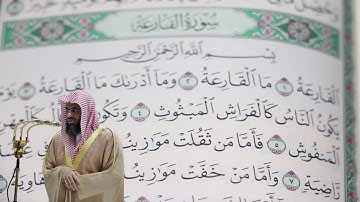 سُورَةُ القَارِعَةِ
بِسْمِ اللَّهِ الرَّحْمَٰنِ الرَّحِيمِ
الْقَارِعَةُ ١ مَا الْقَارِعَةُ ٢ وَمَا أَدْرَىٰكَ مَا الْقَارِعَةُ ٣
يَكُونُ النَّاسُ كَالْفَرَاشِ الْمَبْثُوثِ ٤ وَتَكُونُ
الْمَنفُوشِ ٥ فَأَمَّا مَن ثَقُلَتْ مَوَٰزِينُ
رَّاضِيَةٍ ٧ وَأَمَّا مَنْ خَفَّتْ مَوَٰزِينُ